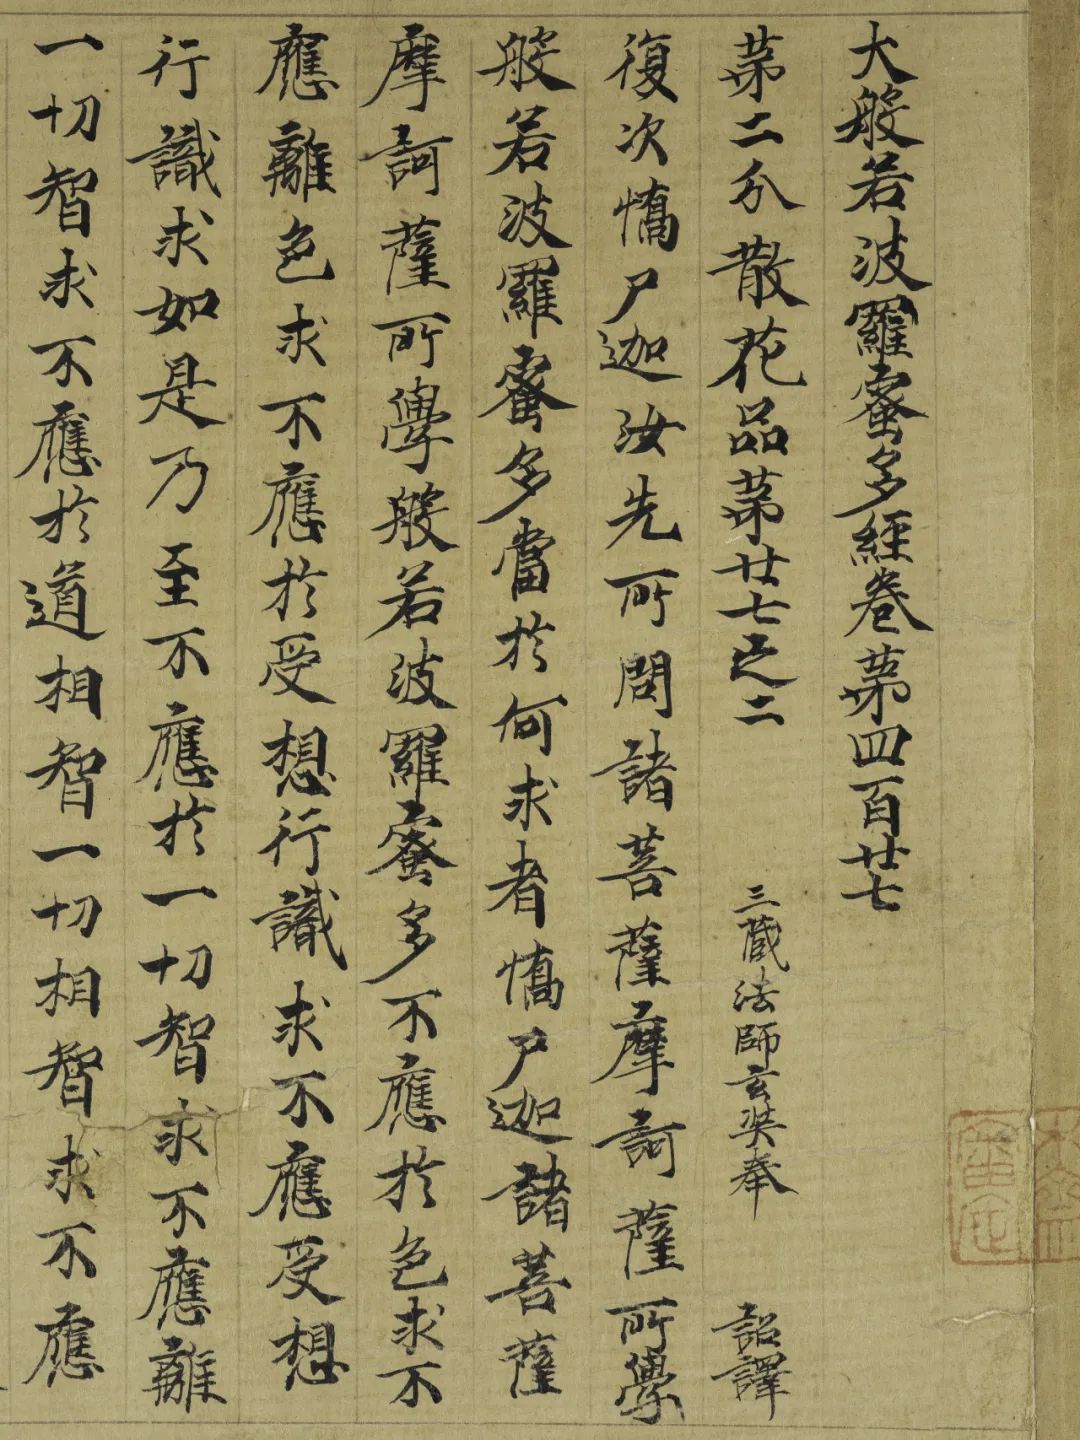 大般若波羅蜜多經卷苐四百廿七
苐二分散花品苐廿七之二 三藏法師玄奘奉 詔譯
復次憍尸迦汝先所問諸菩薩摩訶薩所學
般若波羅蜜多當於何求者憍尸迦諸菩薩
摩訶薩所學般若波羅蜜多不應於色求不
應離色求不應於受想行識求不應受想
行識求如是乃至不應於一切智求不應離
一切智求不應於道相智一切相智求不應